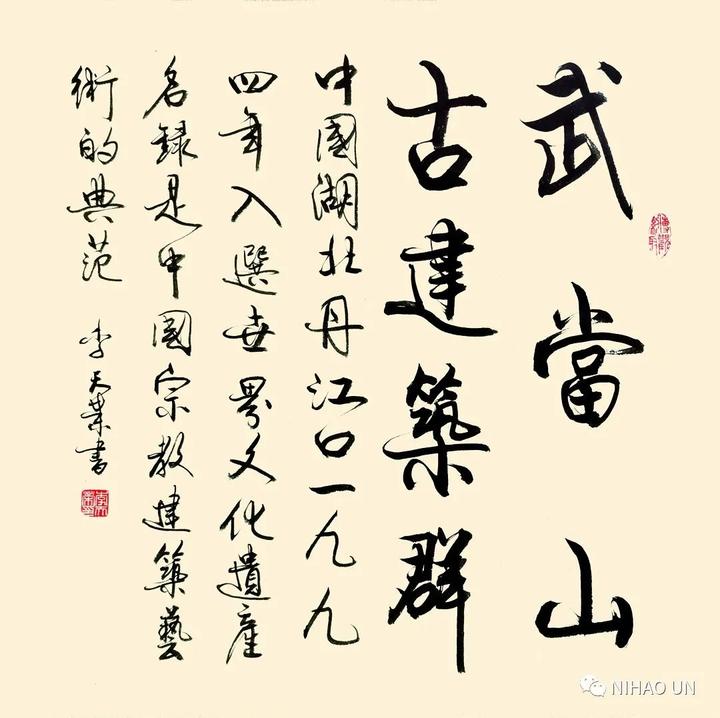 武當山
古建築群
中國湖北丹江口一九九
四年入選世界文化遺產
名録是中國宗教建築藝
術的典范
李天業書
NIHAO UN